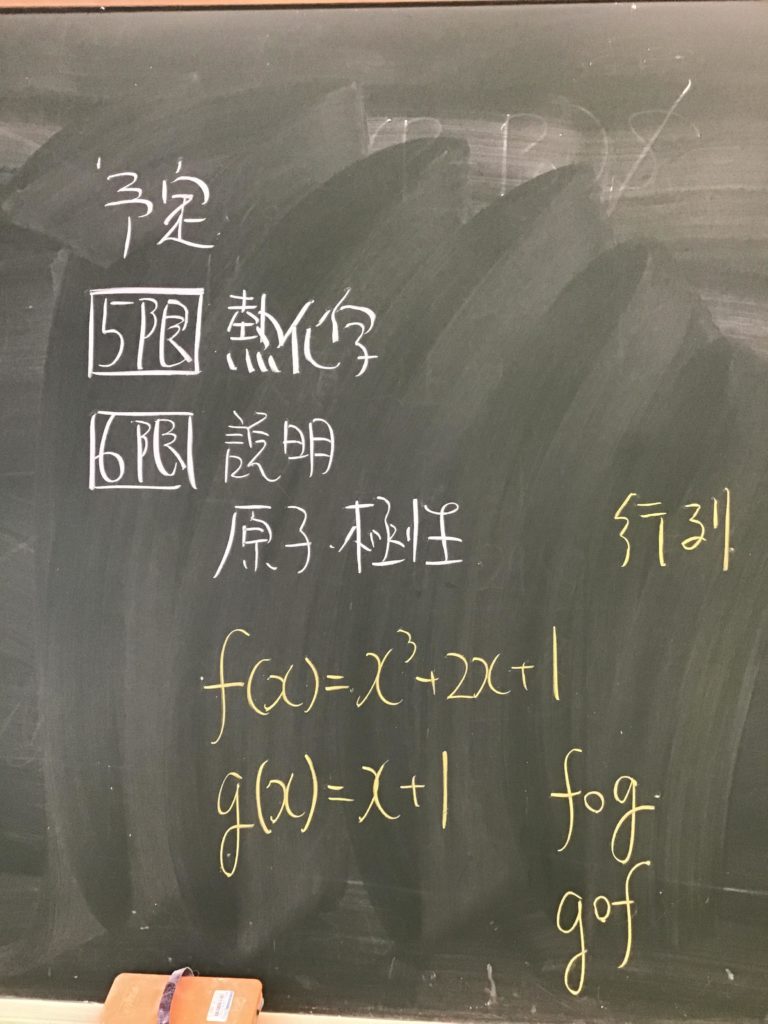 予定
5限 熱化学
6限 説明
原子・極性
行列
f(x)=x³+2x+1
g(x)=x+1
f∘g
g∘f